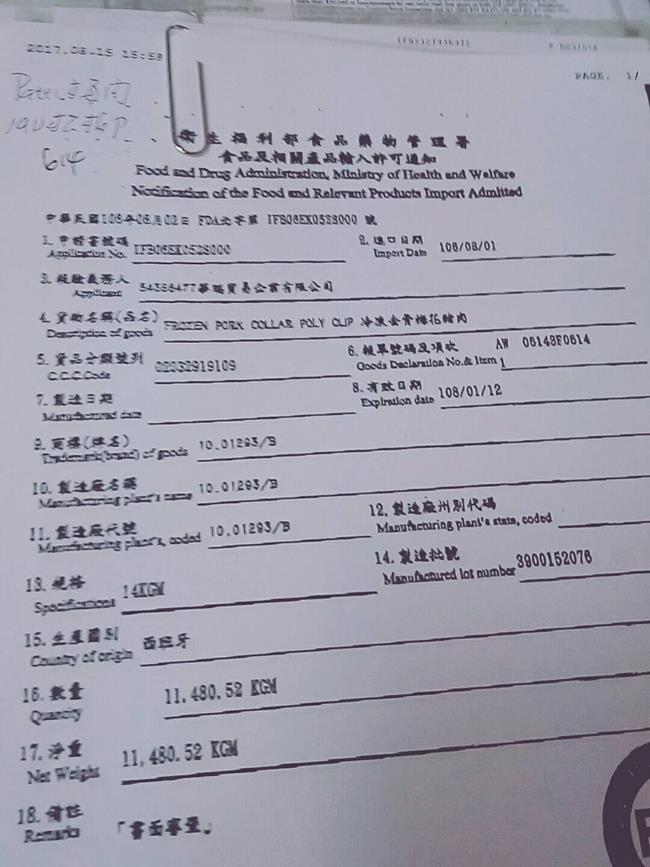 2017.06.15 15:59
PAGE. 1/
衛生福利部食品藥物管理署
食品及相關產品輸入許可通知
Food and Drug Administration, Ministry of Health and Welfare
Notification of the Food and Relevant Products Import Admitted
中華民國106年06月02日 FDA北字第 IFB06EK0528000 號
1. 申請書號碼 IFB06EK0528000 2. 進口日期 106/06/01
Application No. Import Date
3. 報驗義務人 54356477華瑞貿易企業有限公司
Applicant
4. 貨物名稱(品名) FROZEN PORK COLLAR POLY CLIP 冷凍去骨梅花豬肉
Description of goods
5. 貨品分類號列 02032919109 6. 報單號碼及項次 AW 06149F0614
C.C.C.Code Goods Declaration No.& Item 1
7. 製造日期 8. 有效日期 108/01/12
Manufactured date Expiration date
9. 商標(牌名) 10.01293/B
Trademark(brand) of goods
10. 製造廠名稱 10.01293/B
Manufacturing plant's name
11. 製造廠代號 10.01293/B 12. 製造廠州別代碼
Manufacturing plant's, coded Manufacturing plant's state, coded
13. 規格 14KGM 14. 製造批號 3900152076
Specifications Manufactured lot number
15. 生產國別 西班牙
Country of origin
16. 數量 11,480.52 KGM
Quantity
17. 淨重 11,480.52 KGM
Net Weight
18. 備註 「書面審查」
Remarks